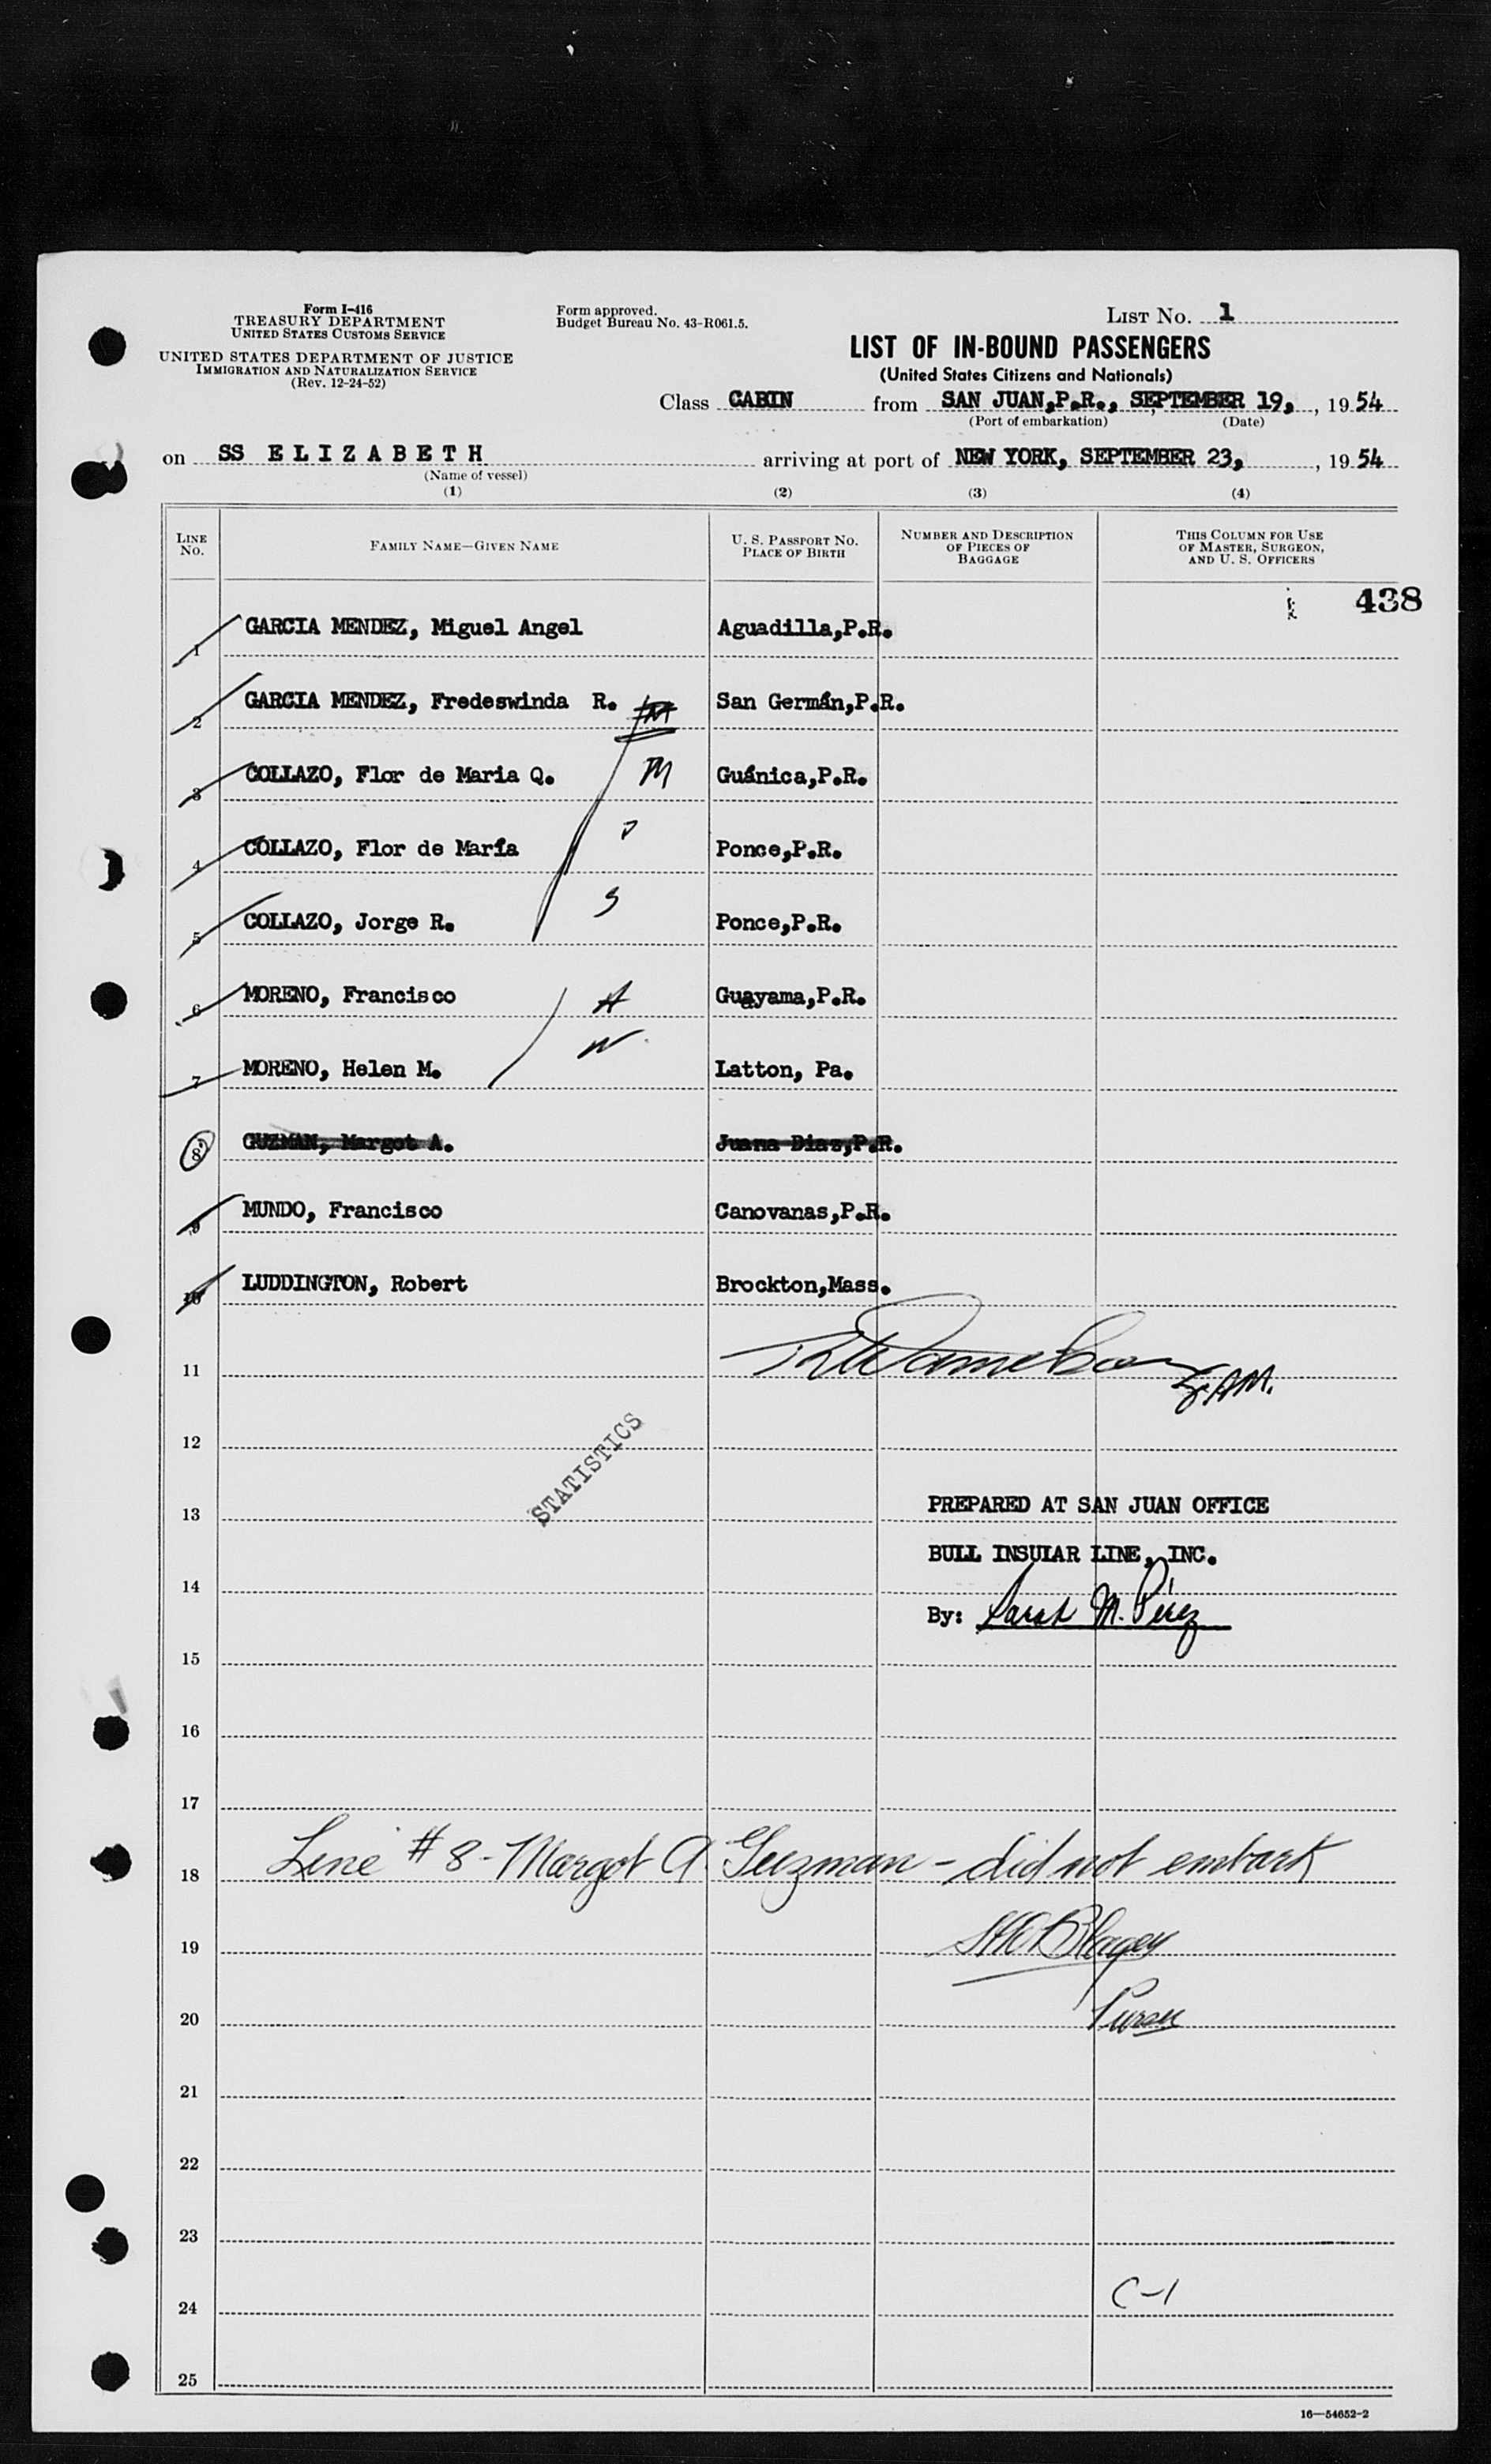 Form I-416
TREASURY DEPARTMENT
UNITED STATES CUSTOMS SERVICE
UNITED STATES DEPARTMENT OF JUSTICE
IMMIGRATION AND NATURALIZATION SERVICE
(Rev. 12-24-52)
Form approved.
Budget Bureau No. 43-R061.5.
LIST No. 1
LIST OF IN-BOUND PASSENGERS
(United States Citizens and Nationals)
Class CABIN from SAN JUAN,P.R., SEPTEMBER 19, , 1954
(Port of embarkation) (Date)
on SS ELIZABETH arriving at port of NEW YORK, SEPTEMBER 23, , 1954
(Name of vessel)
(1) (2) (3) (4)
LINE No. FAMILY NAME—GIVEN NAME U. S. PASSPORT NO. PLACE OF BIRTH NUMBER AND DESCRIPTION OF PIECES OF BAGGAGE THIS COLUMN FOR USE OF MASTER, SURGEON, AND U. S. OFFICERS
438
1 GARCIA MENDEZ, Miguel Angel Aguadilla,P.R.
2 GARCIA MENDEZ, Fredeswinda R. San Germán,P.R.
3 COLLAZO, Flor de Maria Q. M Guánica,P.R.
4 COLLAZO, Flor de María Ponce,P.R.
5 COLLAZO, Jorge R. S Ponce,P.R.
6 MORENO, Francisco H Guayama,P.R.
7 MORENO, Helen M. W Latton, Pa.
8 GUZMAN, Margot A. Juana Diaz,P.R.
9 MUNDO, Francisco Canovanas,P.R.
10 LUDDINGTON, Robert Brockton,Mass.
11
12
STATISTICS
13 PREPARED AT SAN JUAN OFFICE
BULL INSULAR LINE, INC.
14
By: Sarah M. Pérez
15
16
17
18 Line #8 - Margot A. Guzman - did not embark
19
20 Purser
21
22
23
24 C-1
25
16—54652-2